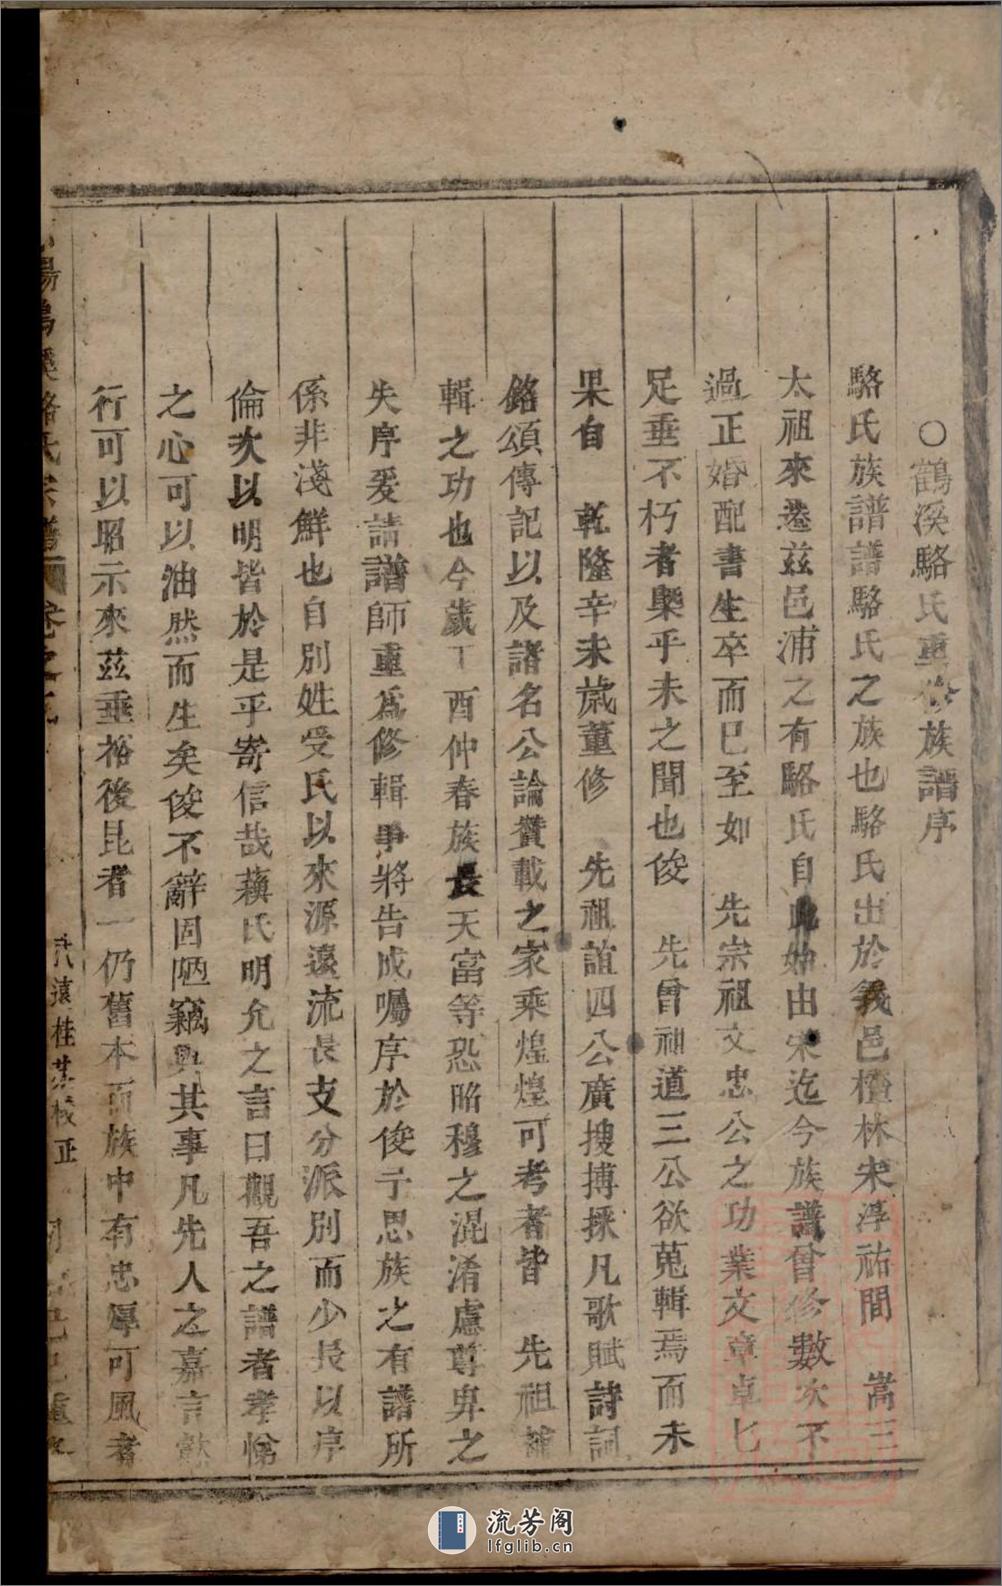 ○鶴溪駱氏重修族譜序
駱氏族譜譜駱氏之族也駱氏出於義邑櫧林宋淳祐間　嵩三
太祖來遷兹邑浦之有駱氏自此始由宋迄今族譜曾修數次不
過正婚配書生卒而已至如　先宗祖文忠公之功業文章卓匕
足垂不朽者槩乎未之聞也俊　先曾祖道三公欲蒐輯焉而未
果自　乾隆辛未歲董修　先祖誼四公廣搜摶採凡歌賦詩詞
銘頌傳記以及諸名公論贊載之家乘煌煌可考者皆　先祖補
輯之功也今歲丁酉仲春族長天富等恐昭穆之混淆慮尊卑之
失序爰請譜師重為修輯事將告成囑序於俊予思族之有譜所
係非淺鮮也自別姓受氏以來源遠流長支分派別而少長以序
倫次以明皆於是乎寄信哉蘓氏明允之言曰觀吾之譜者孝悌
之心可以油然而生矣俊不辭固陋竊與其事凡先人之嘉言懿
行可以昭示來茲垂裕後昆者一仍舊本而族中有忠厚可風者
陽鶴溪駱氏宗譜　卷之
遠桂校正
流芳阁
lfglib.cn